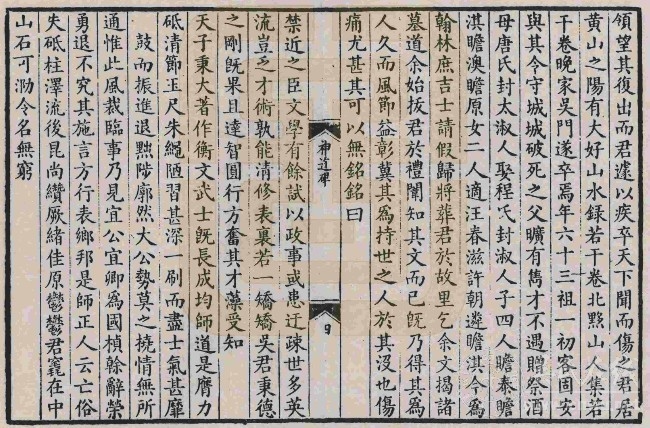 領望其復出而君遽以疾卒天下聞而傷之君居
黄山之陽有大好山水錄若干卷北黟山人集若
干卷晚家吳門遂卒焉年六十三祖一初客固安
與其令守城城破死之父曠有雋才不遇贈祭酒
母唐氏封太淑人娶程氏封淑人子四人瞻泰瞻
淇瞻澳瞻原女二人適汪春滋許朝遴瞻淇今為
翰林庶吉士請假歸將葬君於故里乞余文揭諸
墓道余始拔君於禮闈知其文而已既乃得其為
人久而風節益彰冀其為持世之人於其沒也傷
痛尤甚其可以無銘銘曰
禁近之臣文學有餘試以政事或患迂疎世多英
流豈乏才術孰能清修表裏若一矯矯吳君秉德
之剛既果且達智圓行方奮其才藻受知
天子秉大著作衡文武士既長成均師道是膺力
砥清節玉尺朱繩陋習甚深一刷而盡士氣甚靡
一鼓而振進退黜陟廓然大公勢莫之撓情無所
通惟此風裁臨事乃見宜公宜卿為國楨榦辭榮
勇退不究其施言方行表鄉邦是師正人云亡俗
失砥柱澤流後昆尚纘厥緒佳原鬱鬱君窀在中
山石可泐令名無窮
神道碑